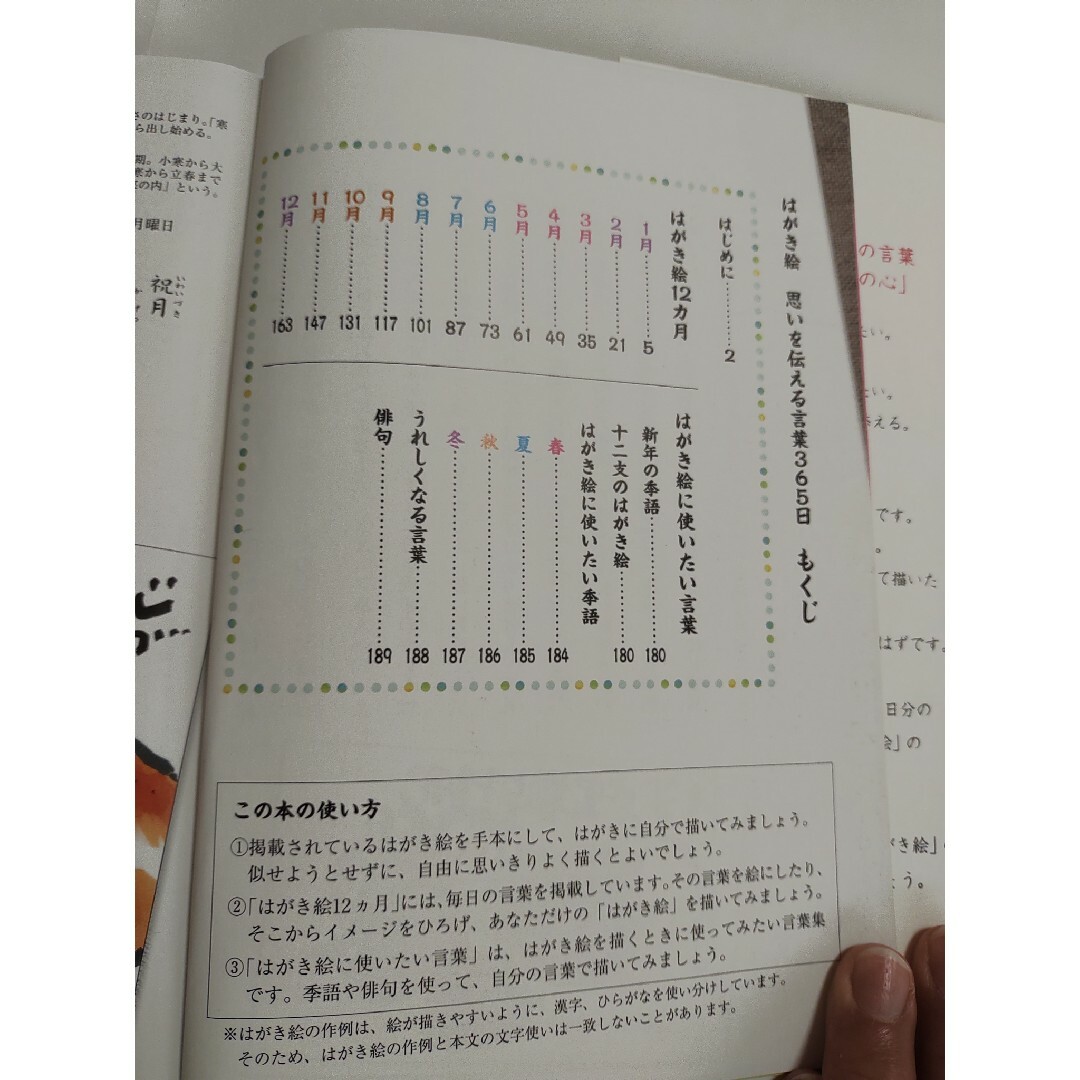 はがき絵 思いを伝える言葉365日 もくじ
はじめに………2
はがき絵12カ月
1月………5
2月………21
3月………35
4月………49
5月………61
6月………73
7月………87
8月………101
9月………117
10月………131
11月………147
12月………163
はがき絵に使いたい言葉
新年の季語………180
十二支のはがき絵………180
はがき絵に使いたい季語
春………184
夏………185
秋………186
冬………187
うれしくなる言葉………188
俳句………189
この本の使い方
①掲載されているはがき絵を手本にして、はがきに自分で描いてみましょう。
似せようとせずに、自由に思いきりよく描くとよいでしょう。
②「はがき絵12ヵ月」には、毎日の言葉を掲載しています。その言葉を絵にしたり、
そこからイメージをひろげ、あなただけの「はがき絵」を描いてみましょう。
③「はがき絵に使いたい言葉」は、はがき絵を描くときに使ってみたい言葉集
です。季語や俳句を使って、自分の言葉で描いてみましょう。
※はがき絵の作例は、絵が描きやすいように、漢字、ひらがなを使い分けしています。
そのため、はがき絵の作例と本文の文字使いは一致しないことがあります。
さのはじまり。「寒
ら出し始める。
期。小寒から大
寒から立春まで
の内」という。
月曜日
祝月
いわいづき
の言葉
の心」
たい。
たい。
える。
です。
。
て描いた
はずです。
日分の
絵」の
がき絵」
ょう。